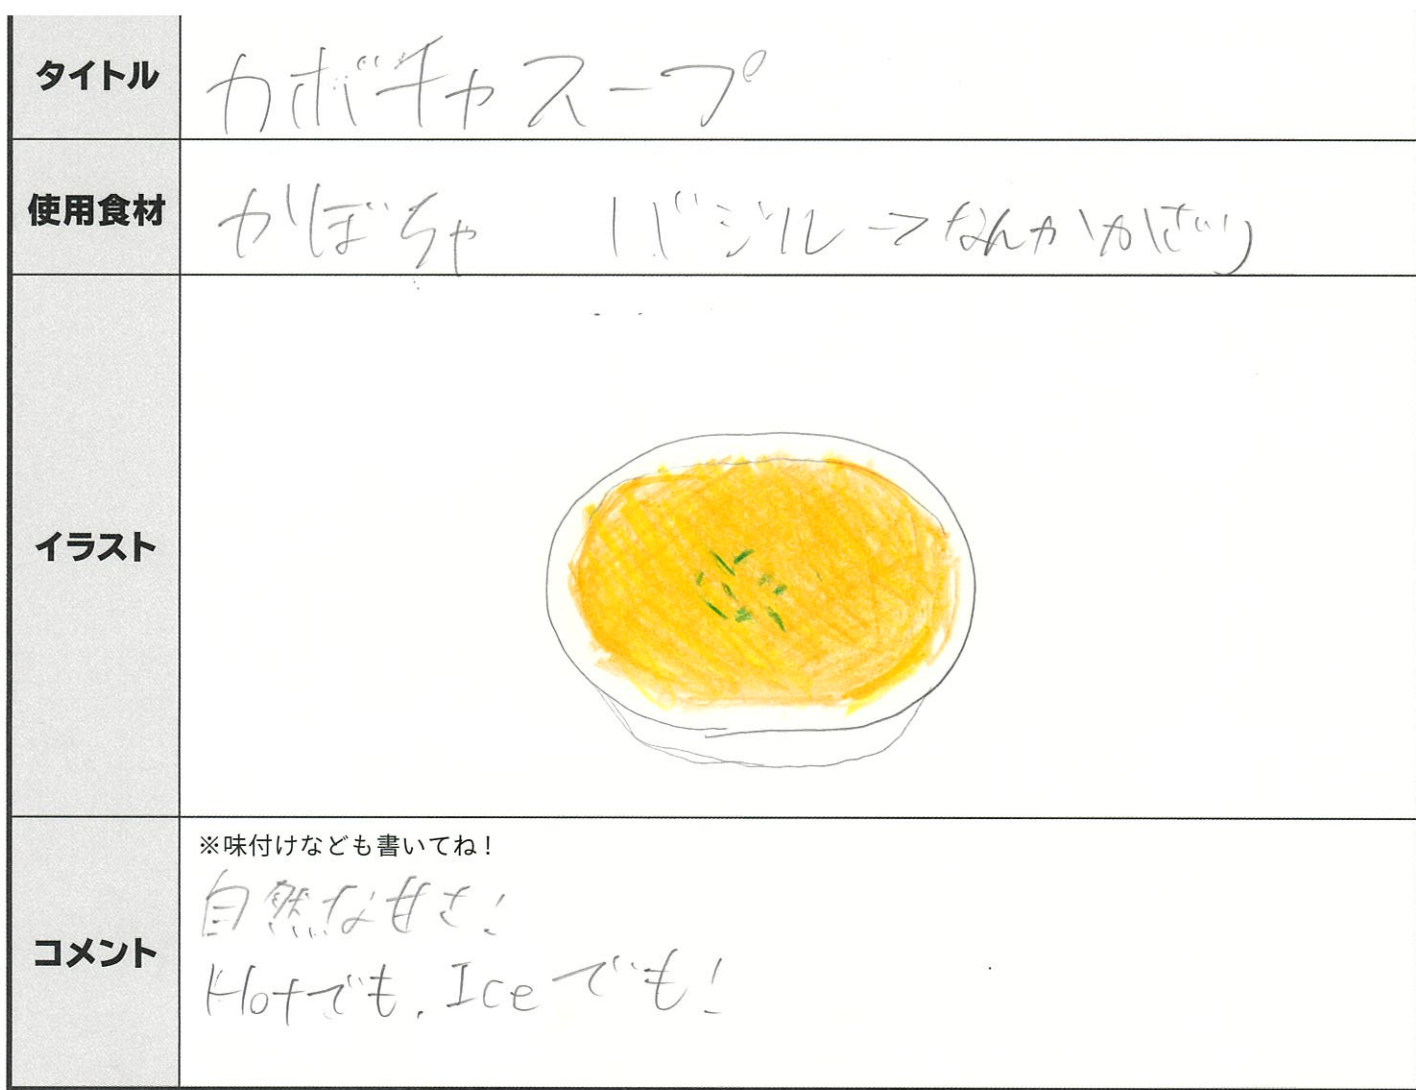 タイトル
カボチャスープ
使用食材
かぼちゃ バジル→なんかかざり
イラスト
コメント
※味付けなども書いてね!
自然な甘さ!
Hotでも、Iceでも!